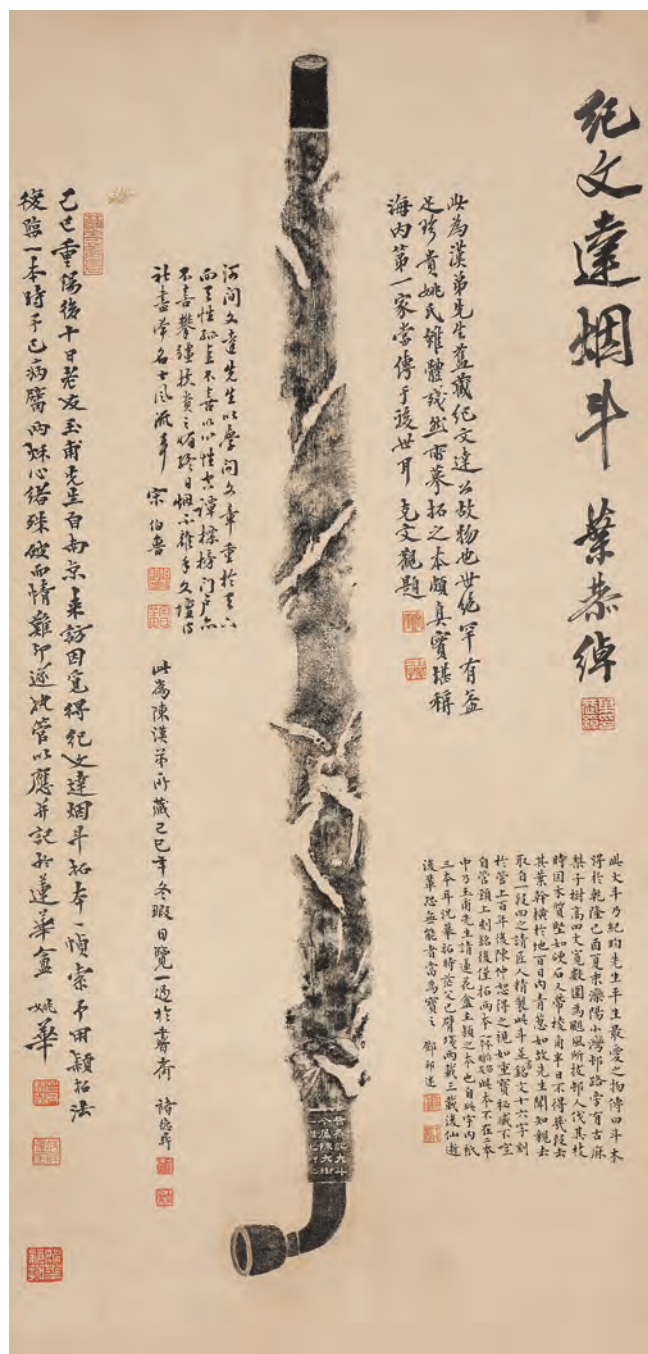 紀文達烟斗 葉恭綽
此為漢弟先生舊藏紀文達公故物也世絕罕有益
足珍貴姚氏雖體殘然所摹拓之本頗真實堪稱
海内第一家當傳于後世耳 克文觀題
此大斗乃紀昀先生平生最愛之物傳曰斗木
得於乾隆己酉夏末灤陽小灣邨路旁有古麻
梨子樹高四丈寬數圍為颶風所拔邨人伐其枝
時因木質堅如硬石又帶稜角半日不得幾段去
其葉幹橫於地百日内青葱如故先生聞知親去
取自一段回之請匠人精製此斗並銘文十六字刻
於管上百年後陳仲恕得之視如重寶秘藏不宣
自管頭上刻銘後僅拓兩本此本不在二本
中乃玉甫先生請蓮花盦主穎之本也自此宇内祇
三本耳況摹拓時茫父已臂殘兩載三載後仙逝
後輩恐無能者當為寶之 鄧邦述
河間文達先生以學問文章重於天下
而天性孤直不喜以心性空譚標榜门户亦
不喜攀缰扶貴之媚终日烟不離手文壇诗
社盡常名士風流耳 宗伯魯
此為陳漢弟所藏己巳年冬暇日覽一過於書齋 褚德彝
己巳重陽後十日老友玉甫先生自南京來訪因覓得紀文達烟斗拓本一幀索予用穎拓法
後臨一本時予已病臂兩秌心緒殊破而情難却遂决管以應并記於蓮華盦 姚華